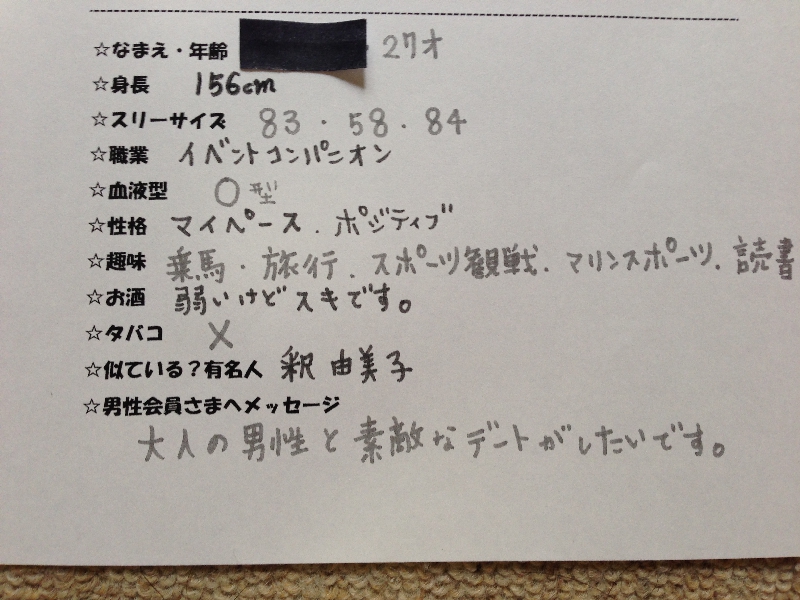 ☆なまえ・年齢 ・27才
☆身長 156cm
☆スリーサイズ 83・58・84
☆職業 イベントコンパニオン
☆血液型 O型
☆性格 マイペース.ポジティブ
☆趣味 乗馬・旅行.スポーツ観戦.マリンスポーツ.読書
☆お酒 弱いけどスキです。
☆タバコ ×
☆似ている?有名人 釈由美子
☆男性会員さまへメッセージ
大人の男性と素敵なデートがしたいです。